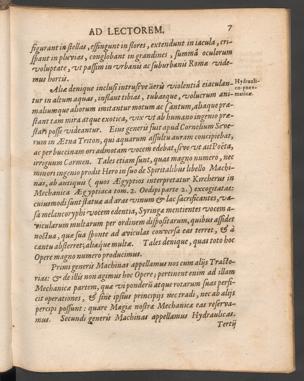 AD LECTOREM. 7
figurant in stellas, effingunt in flores, extendunt in iacula, cri-
spant in pluvias, conglobant in grandines, summâ oculorum
voluptate, ut passim in urbanis ac suburbanis Romæ vide-
mus hortis.
Aliæ denique inclusi intrusive aëris violentiâ eiaculan-
tur in altum aquas, inflant tibias, tubasque, voluctum ani-
maliumque aliorum imitantur motum ac cantum, aliaque præ-
stant tam mira atque exotica, vix ut ab humano ingenio præ-
stari posse videantur. Eius generis fuit apud Cornelium Seve-
rum in Ætna Triton, qui aquarum assultu auram concipiebat,
ac per buccinam ori admotam vocem edebat, sive ut ait Poëta,
irriguum Carmen. Tales etiam sunt, quas magno numero, nec
minori ingenio prodit Hero in suo de Spiritalibus libello Machi-
nas, ab antiquis (quos Ægyptios interpretatur Kircherus in
Mechanica Ægyptiaca tom. 2. Oedipi parte 2.) excogitatas:
cuiusmodi sunt statuæ ad aras vinum & lac sacrificantes, va-
sa melancoryphi vocem edentia, Syringæ mentientes vocem a-
vicularum multarum per ordinem dispositarum, quibus assidet
noctua, quæ sua sponte ad aviculas conversa eas terret, & à
cantu absterret; aliaque multæ. Tales denique, quas toto hoc
Opere magno numero producimus.
Primi generis Machinas appellamus nos cum alijs Tracto-
rias: & de illis non agimus hoc Opere; pertinent enim ad illam
Mechanicæ partem, quæ vi ponderū atque rotarum suas perfi-
cit operationes, & sine ipsius principijs nec tradi, nec ab alijs
percipi possunt: quare Magiæ nostræ Mechanicæ eas reserva-
mus. Secundi generis Machinas appellamus Hydraulicas.
Tertij
Hydrauli-
co-pneu-
maticæ.